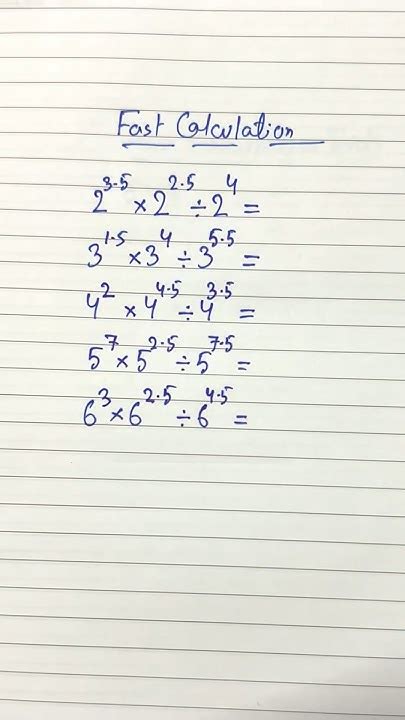 Fast Calculation
2^3.5 × 2^2.5 ÷ 2^4 =
3^1.5 × 3^4 ÷ 3^5.5 =
4^2 × 4^4.5 ÷ 4^3.5 =
5^7 × 5^2.5 ÷ 5^7.5 =
6^3 × 6^2.5 ÷ 6^4.5 =